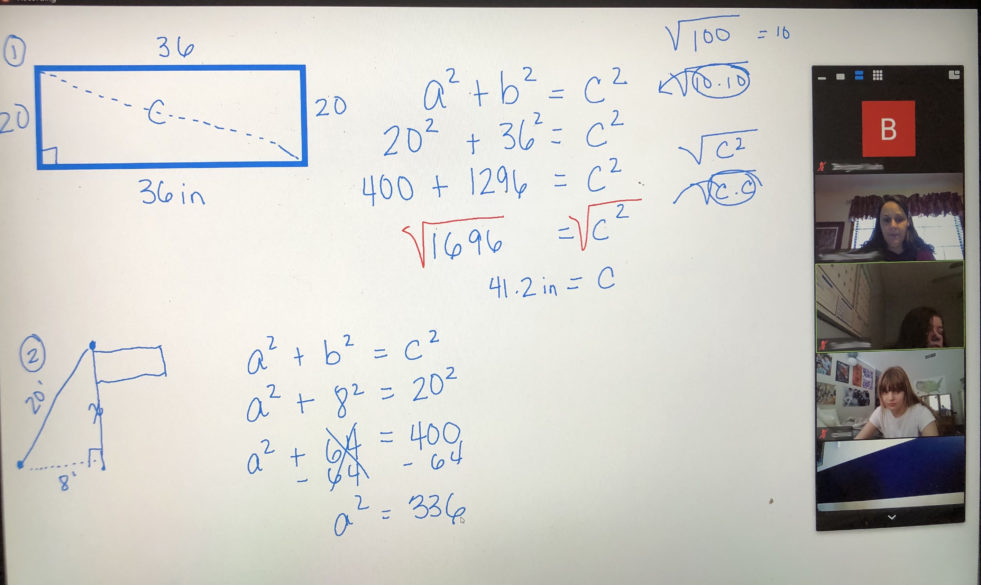 1
36
20
C
20
36 in
a² + b² = c²
20² + 36² = c²
400 + 1296 = c²
√1696 = √c²
41.2 in = C
√100 = 10
√10·10
√c²
√c·c
B
2
20'
8'
a² + b² = c²
a² + 8² = 20²
a² + 64 = 400
- 64 - 64
a² = 336